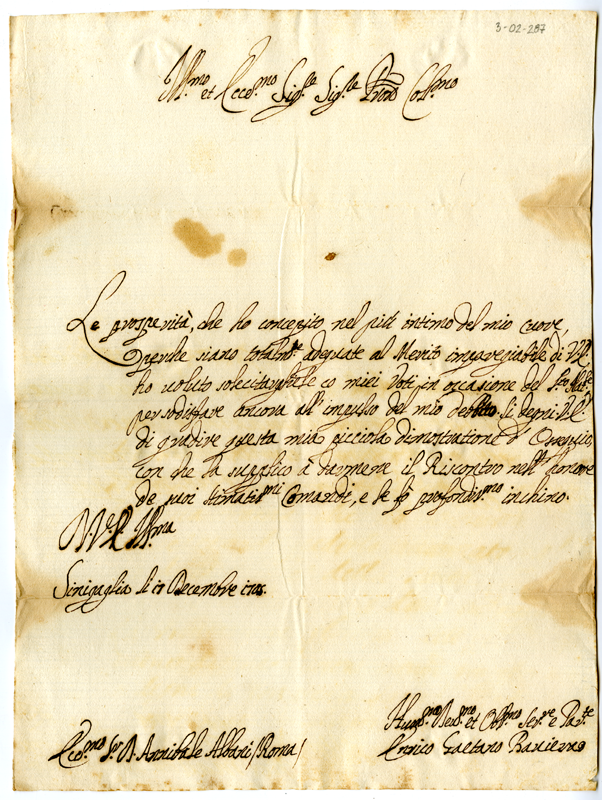 3-02-287
Ill.mo et Ecce.mo Sig.re Sig.re P̃rone Coll.mo
Le prosperità, che ho concepito nel più intimo del mio cuore,
perche siano totalm.te adequate al Merito impareggiabile di V.E.
ho voluto solecitargliele co miei Voti in occasione del S.to Nat.e
per sodisfare ancora all'impulso del mio debito. Si degni V.E.
di gradire questa mia picciola dimostratione d'Ossequio,
con che la supplico à darmene il Riscontro nell'honore
de suoi stimatis.mi Comandi, e le fò profondis.mo inchino.
D. V.E. Ill.ma
Sinigaglia li 17 Decembre
Ecc.mo S.r D. Annibale Albani /Roma/
Hum.mo Dev.mo et Obl.mo Ser.re e Par.te
Enrico Gaetano Ranieri